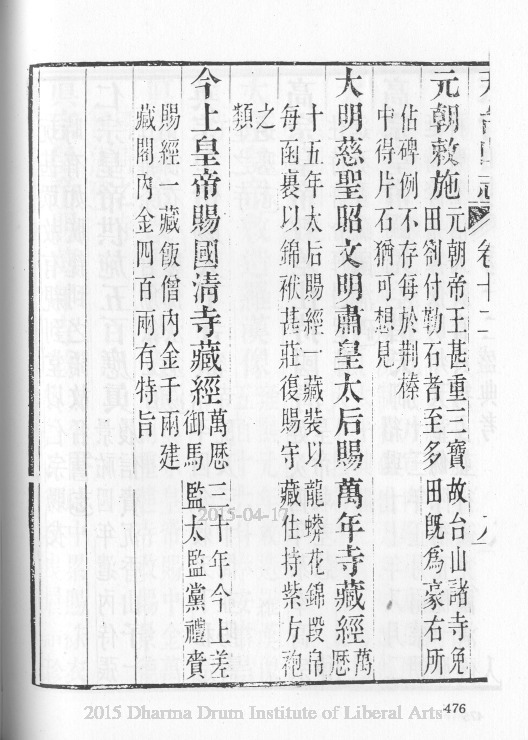 卷十二 八
元朝敕施元朝帝王甚重三寶故台山諸寺免
田劄付勒石者至多田旣爲豪右所
佔碑例不存每於荆榛
中得片石猶可想見
大明慈聖昭文明肅皇太后賜萬年寺藏經萬
歷
十五年太后賜經一藏裝以龍蟒花錦段帛
每函裹以錦袱甚莊復賜守藏住持紫方袍
之
類
今上皇帝賜國清寺藏經萬歷三十年今上差
御馬監太監黨禮賫
賜經一藏飯僧內金千兩建
藏閣內金四百兩有特旨
2015-04-17
476
2015 Dharma Drum Institute of Liberal Arts